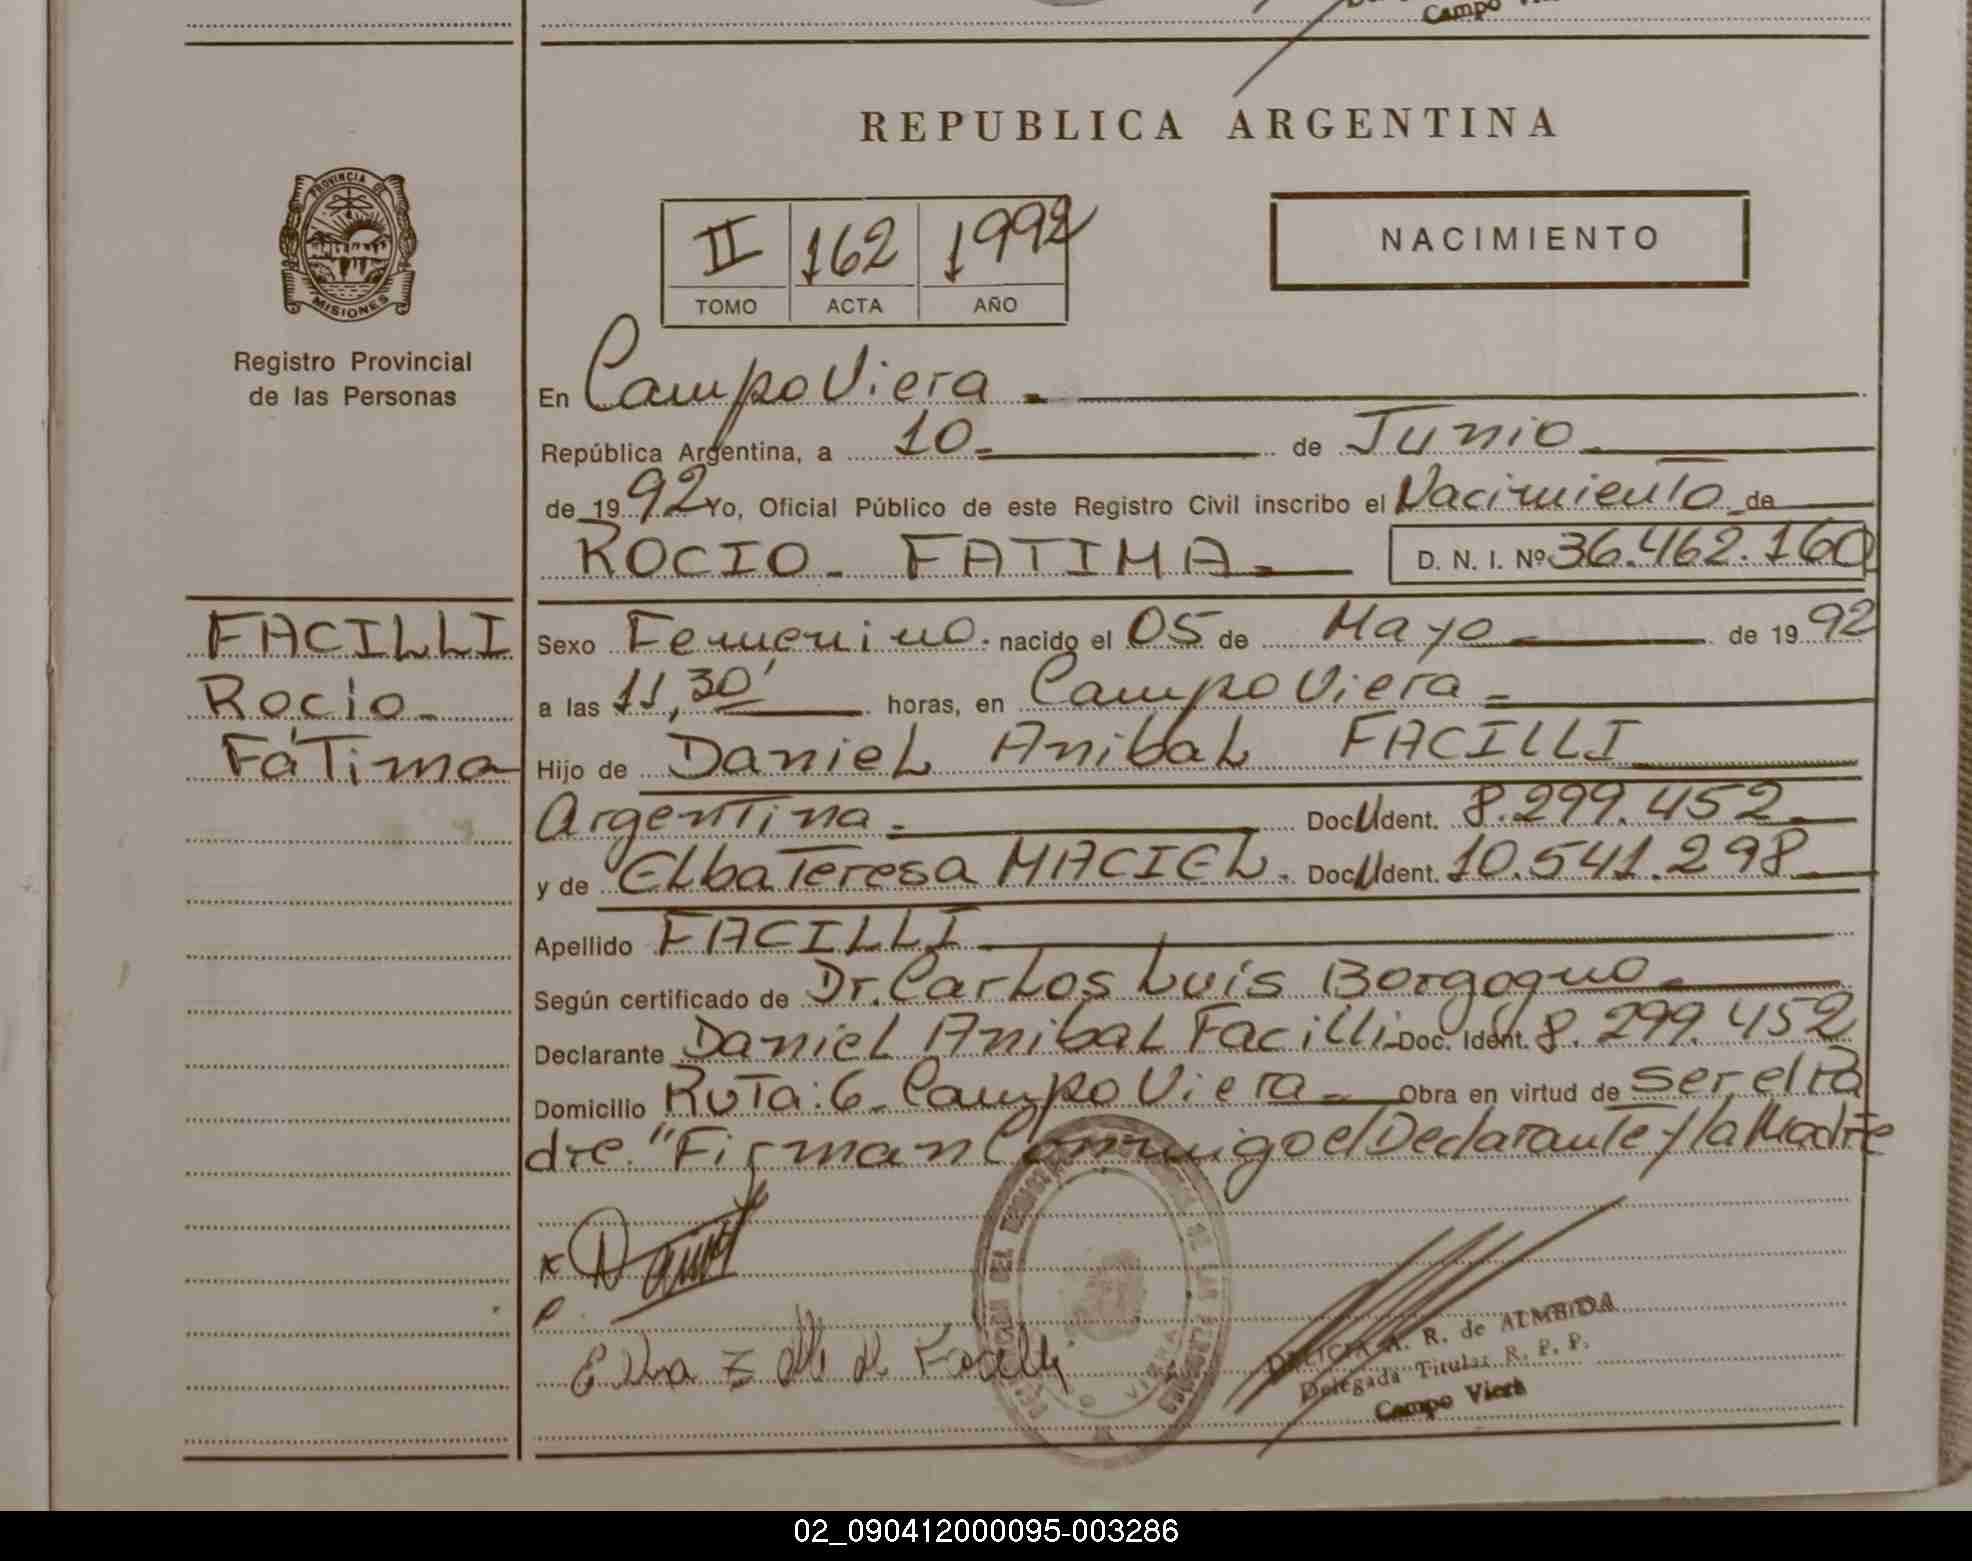 Campo
REPUBLICA ARGENTINA
PROVINCIA DE
MISIONES
Registro Provincial
de las Personas
II 162 1992
TOMO ACTA AÑO
NACIMIENTO
En Campo Viera -
República Argentina, a 10 - de Junio
de 1992 Yo, Oficial Público de este Registro Civil inscribo el Nacimiento de
ROCIO - FATIMA - D. N. I. Nº 36.462.160
FACILLI
Rocio -
Fátima
Sexo Femenino - nacido el 05 de Mayo - de 1992
a las 11,30' horas, en Campo Viera -
Hijo de Daniel Anibal FACILLI
Argentina - Doc U Ident. 8.299.452
y de Elba Teresa MACIEL - Doc U Ident. 10.541.298
Apellido FACILLI
Según certificado de Dr. Carlos Luis Borgogno -
Declarante Daniel Anibal Facilli - Doc. Ident. 8.299.452
Domicilio Ruta: 6 - Campo Viera - Obra en virtud de ser el Pa
dre. "Firman Conmigo el Declarante y la Madre
A. R. de ALMEIDA
Delegada Titular R. P. P.
Campo Viera
02_090412000095-003286